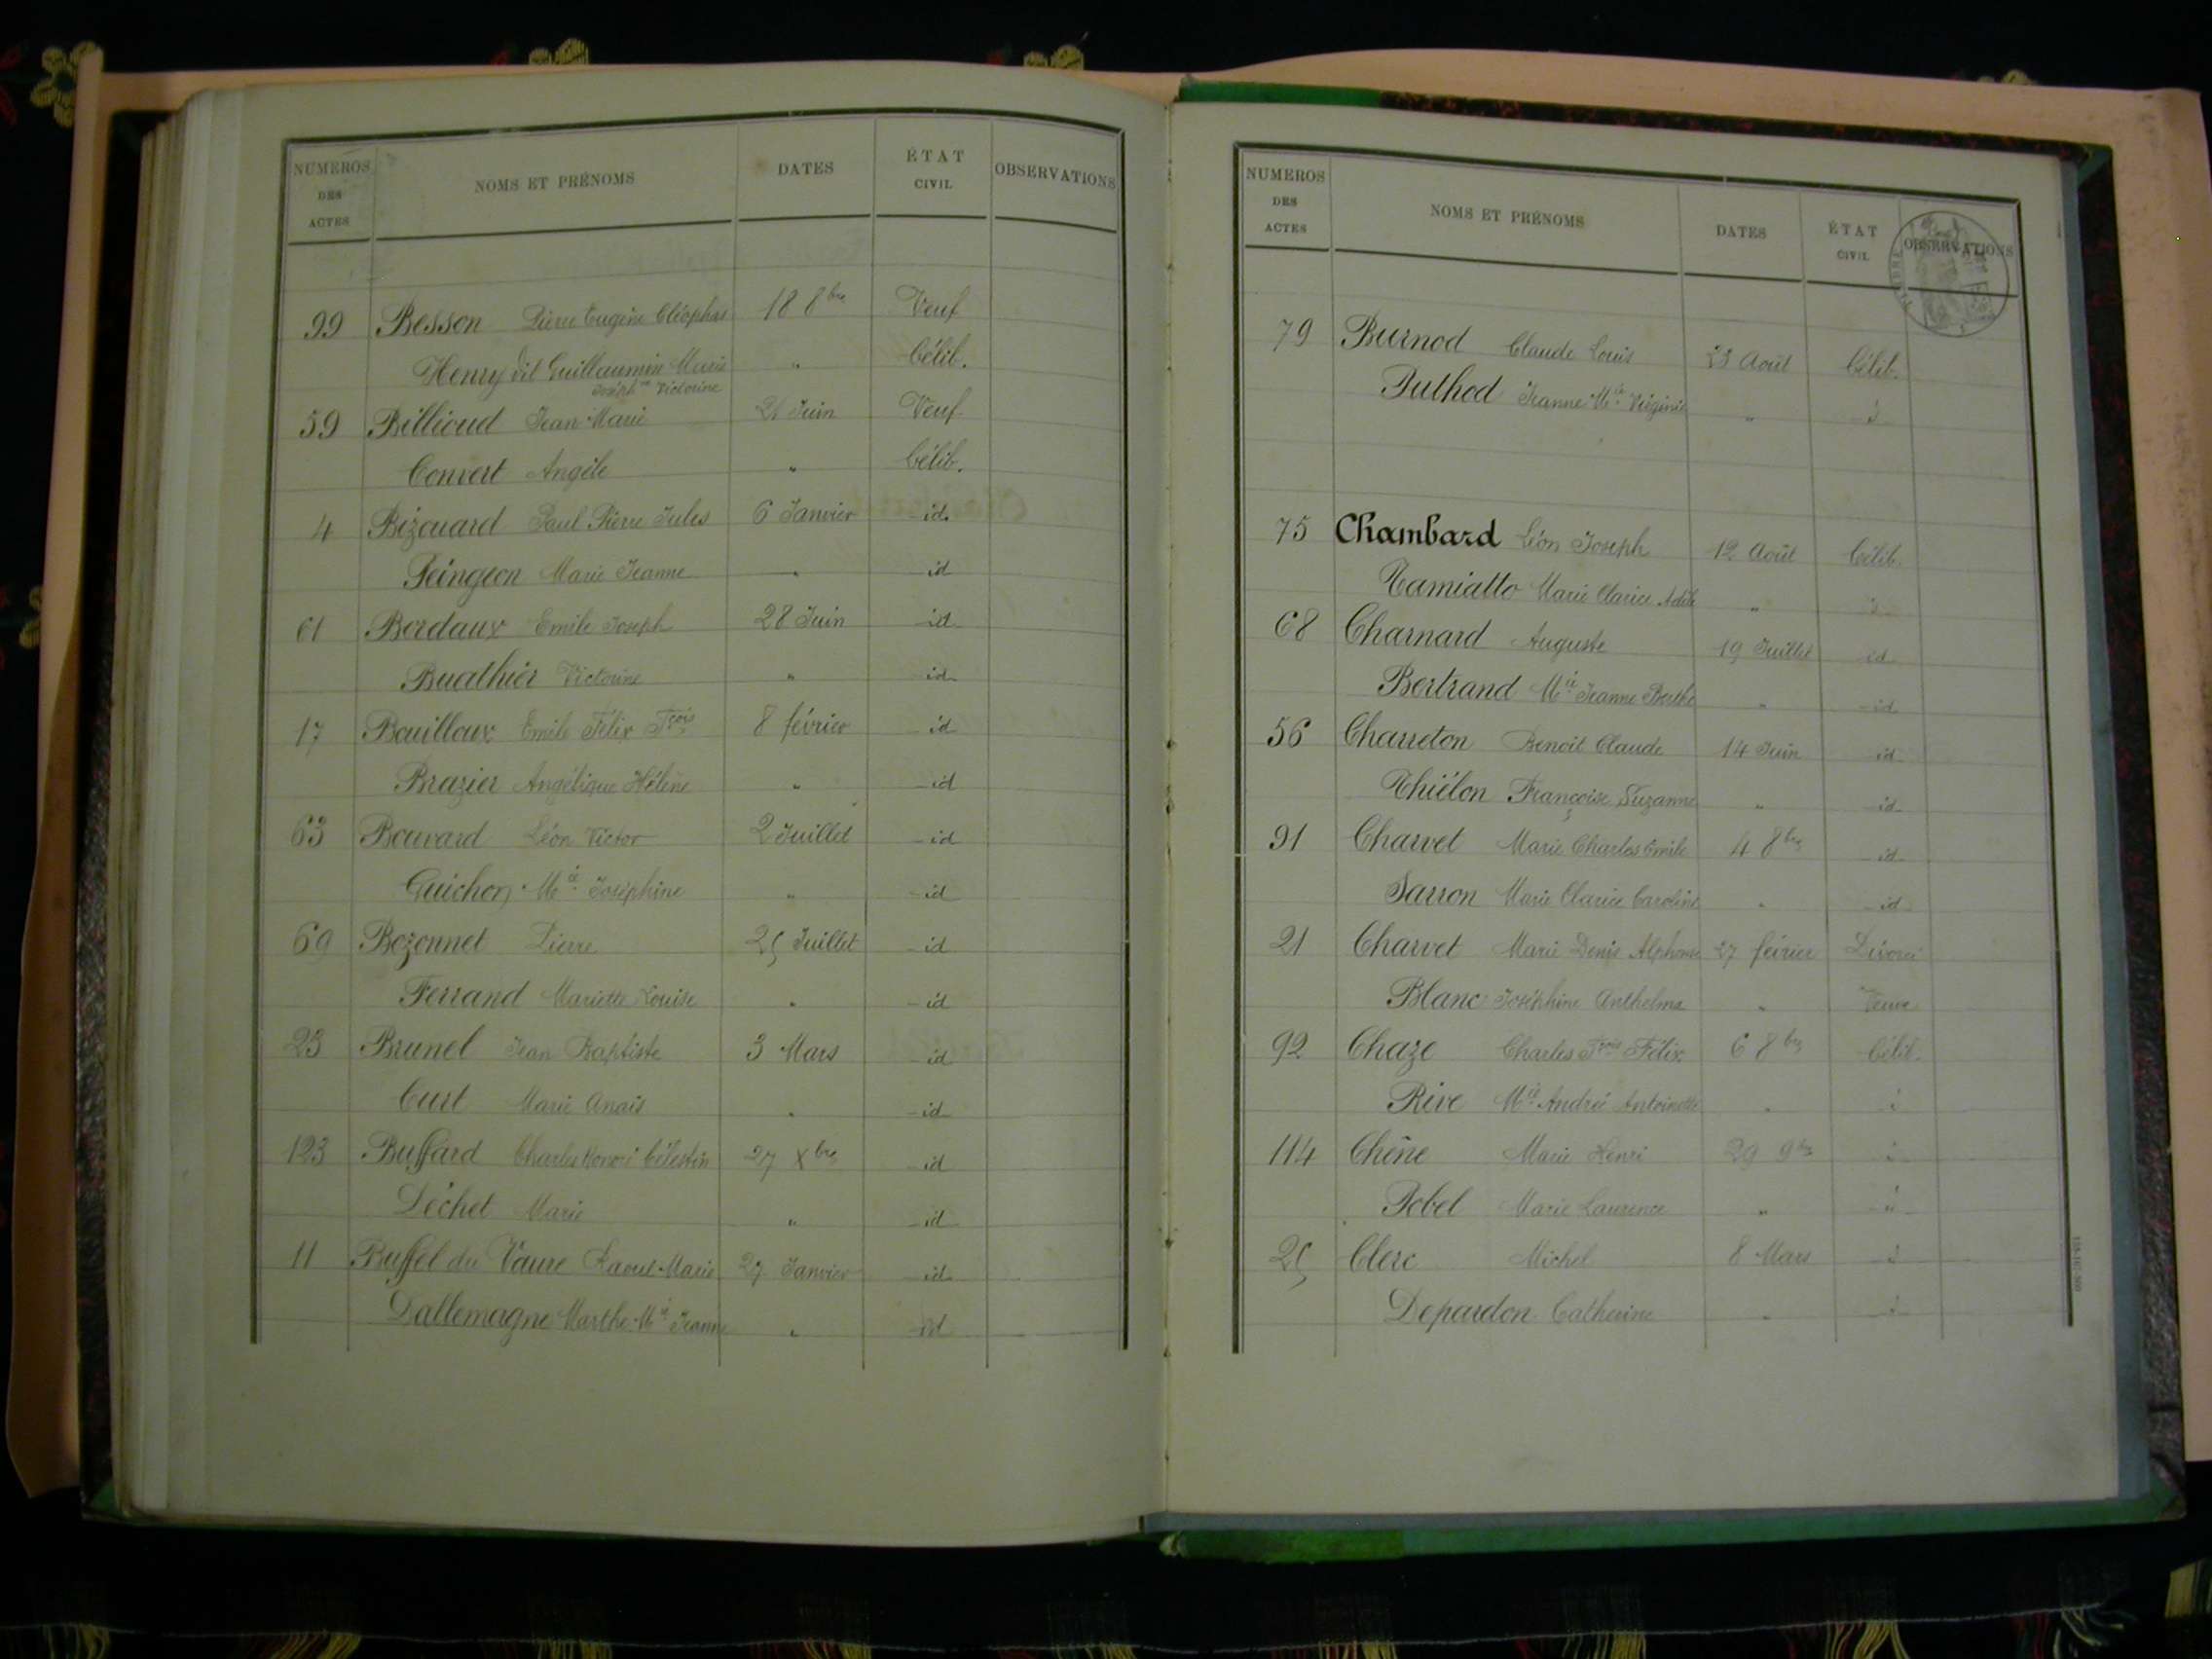 NUMEROS DES ACTES NOMS ET PRÉNOMS DATES ÉTAT CIVIL OBSERVATIONS
99 Besson Pierre Eugène Cléophas 18 8bre Veuf
Henry dit Guillaumin Marie " Célib.
Josephne Victorine
59 Billioud Jean Marie 21 Juin Veuf
Convert Angèle " Célib.
4 Bizouard Paul Pierre Jules 6 Janvier id.
Feingeon Marie Jeanne " id
61 Bordaux Emile Joseph 28 Juin id
Buathier Victorine " id
17 Bouilloux Emile Félix Fçois 8 février id
Brazier Angélique Hélène " id
63 Bouvard Léon Victor 2 Juillet id
Guichon Mie Joséphine " id
69 Bozonnet Pierre 25 Juillet id
Ferrand Mariette Louise " id
23 Brunel Jean Baptiste 3 Mars id
Curt Marie Anaïs " id
123 Buffard Charles Honoré Célestin 27 Xbre id
Déchet Marie " id
11 Buffel du Vaure Raoul Marie 27 Janvier id
Dallemagne Marthe Mie Jeanne " id
NUMEROS DES ACTES NOMS ET PRÉNOMS DATES ÉTAT CIVIL OBSERVATIONS
TIMBRE
79 Burnod Claude Louis 23 Août Célib.
Puthod Jeanne Mie Virginie " id
75 Chambard Léon Joseph 12 Août Célib.
Tamiatto Marie Clarice Adèle "
68 Charnard Auguste 19 Juillet id
Bertrand Mie Jeanne Berthe " id
56 Charreton Benoit Claude 14 Juin id
Thiélon Françoise Suzanne " id
91 Charvet Marie Charles Emile 4 8bre id
Sarron Marie Clarice Caroline " id
21 Charvet Marie Denis Alphonse 27 février Divorcé
Blanc Joséphine Anthelma " Veuve
92 Chaze Charles Fçois Félix 6 8bre Célib.
Rive Mie André Antoinette " id
114 Chêne Marie Henri 29 9bre id
Pobel Marie Laurence " id
25 Clerc Michel 8 Mars id
Depardon Catherine " id